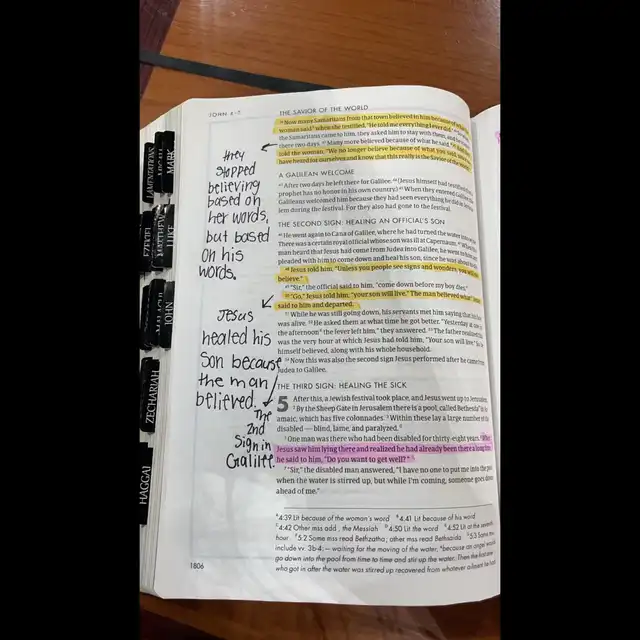 JOHN 4-5
THE SAVIOR OF THE WORLD
Now many Samaritans from that town believed in him because of
woman said when she testified, "He told me everything I ever did."
the Samaritans came to him, they asked him to stay with them, and
there two days. Many more believed because of what he said.
told the woman, "We no longer believe because of what you said,
have heard for ourselves and know that this really is the Savior of the
A GALILEAN WELCOME
After two days he left there for Galilee. (Jesus himself had testified
prophet has no honor in his own country.) When they entered Galilee,
Galileans welcomed him because they had seen everything he did in
lem during the festival. For they also had gone to the festival.
THE SECOND SIGN: HEALING AN OFFICIAL'S SON
He went again to Cana of Galilee, where he had turned the water into
There was a certain royal official whose son was ill at Capernaum.
man heard that Jesus had come from Judea into Galilee, he went to him
pleaded with him to come down and heal his son, since he was about to
Jesus told him, "Unless you people see signs and wonders, you will not
believe."
"Sir," the official said to him, "come down before my boy dies."
"Go," Jesus told him, "your son will live." The man believed what
said to him and departed.
While he was still going down, his servants met him saying that his
was alive. He asked them at what time he got better. "Yesterday at one
the afternoon the fever left him," they answered. The father realized
was the very hour at which Jesus had told him, "Your son will live." So
himself believed, along with his whole household.
Now this was also the second sign Jesus performed after he came from
Judea to Galilee.
THE THIRD SIGN: HEALING THE SICK
5 After this, a Jewish festival took place, and Jesus went up to Jerusalem.
By the Sheep Gate in Jerusalem there is a pool, called Bethesda in
amaic, which has five colonnades. Within these lay a large number of the
disabled — blind, lame, and paralyzed.
One man was there who had been disabled for thirty-eight years. When
Jesus saw him lying there and realized he had already been there a long
he said to him, "Do you want to get well?"
"Sir," the disabled man answered, "I have no one to put me into the pool
when the water is stirred up, but while I'm coming, someone goes down
ahead of me."
4:39 Lit because of the woman's word 4:41 Lit because of his word
4:42 Other mss add , the Messiah 4:50 Lit the word 4:52 Lit at the seventh
hour 5:2 Some mss read Bethzatha; other mss read Bethsaida 5:3 Some
include vv. 3b-4: — waiting for the moving of the water, because an angel would
go down into the pool from time to time and stir up the water. Then the first one
who got in after the water was stirred up recovered from whatever ailment he had
1806
they
stopped
believing
based on
her words,
but based
on his
words.
Jesus
healed his
son because
the man
believed.
The
2nd
Sign in
Galilee.
LAMENTATIONS
MARK
EZEKIEL
MATTHEW
LUKE
MALACHI
JOHN
ZECHARIAH
HAGGAI